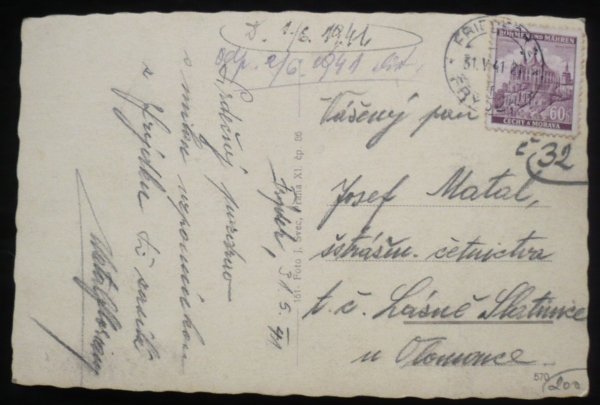 D. 1/6. 1941
odp. 2/6. 1941
Srdečný pozdrav
s milou vzpomínkou
z Frýdku Ti zasílá
Frýdek, 31.5.41
161. Foto J. Švec, Praha XI. čp. 86
FRIEDEK
31.V.41
BÖHMEN UND MÄHREN
60
ČECHY A MORAVA
Vážený pan
č 32
Josef Matal,
četnictva
t. č. Lázně Slatinice
u Olomouce.
570
200